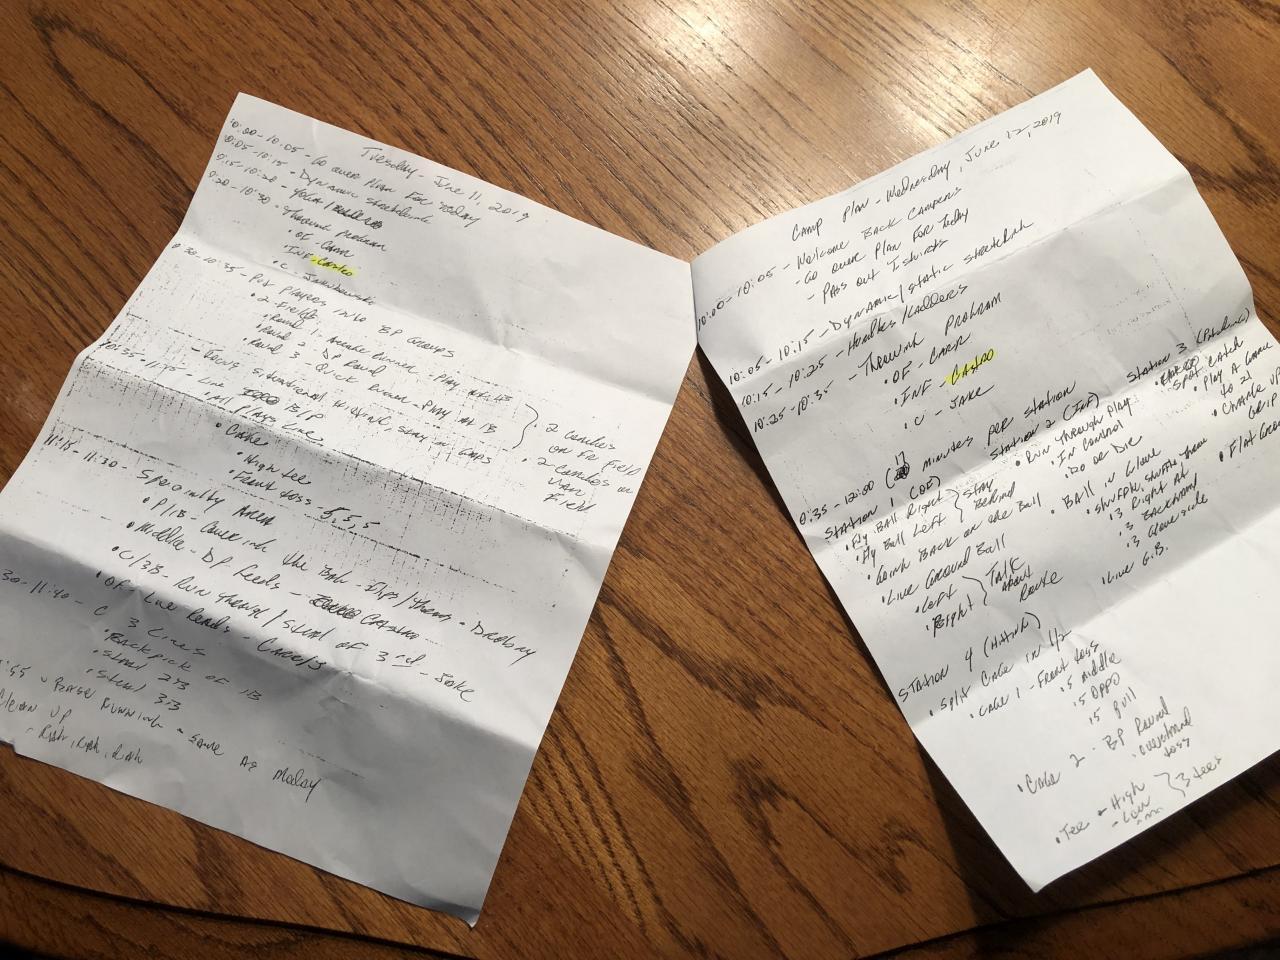 Tuesday - June 11, 2019
10:00-10:05 - Go over Plan For Today
10:05-10:15 - Dynamic stretching
10:15-10:20 - Yoga /
10:20-10:30 - Throwing Program
• OF - Carr
• INF - Castro
• C - Jakubowski
10:30-10:35 - Put Players into BP Groups
• 2 Fields
• Round 1: Arcade Runner - Play
• Round 2: DP Round
• Round 3 - Quick Runner - Play at 1B
- Focus situational hitting, stay in Gaps
• 2 coaches on FR Field
• 2 coaches on Van Field
10:35-11:15 - Live BP
• All Plays Live
• Cage
• High tee
• Front toss - 5, 5, 5
11:15-11:30 - Specialty Area
• P/1B - Covering the Bag - Flips/Throws
• Middle - DP Feeds - Castro
• C/3B - Run Through/steal of 3rd - Jake
• OF - Live Reads - Carr
11:40 - C 3 Lines
• Backpick of 1B
• Steal 2B
• Steal 3B
Base Running - Same as Monday
Clean up
- Rah, Rah, Rah
Camp Plan - Wednesday, June 12, 2019
10:00-10:05 - Welcome Back Campers
- Go over Plan For Today
- Pass out Tshirts
10:05-10:15 - Dynamic/static stretching
10:15-10:25 - Hurdles/Ladders
10:25-10:35 - Throwing Program
• OF - Carr
• INF - Castro
• C - Jake
10:35-12:00 (17 minutes per station
Station 1 (OF)
• Fly Ball Right
• Fly Ball Left
Stay Behind
• Going Back on the Ball
• Live Ground Ball
• Left
• Right
Talk About Route
Station 2 (INF)
• Run Through Play
• In Control
• Do or Die
• Ball in Glove
• Shuffle, Shuffle Throw
• 3 Right at
• 3 Backhand
• 3 Glove side
• Live G.B.
Station 3 (Pitching)
• Spot Catch
• Play a Game to 21
• Change up Grip
• Flat Ground
Station 4 (Hitting)
• Split Cage in 1/2
• Cage 1 - Front toss
• 5 Middle
• 5 Oppo
• 5 Pull
• Cage 2 - BP Round
• Overhand toss
• Tee - High
- Low
3 tees